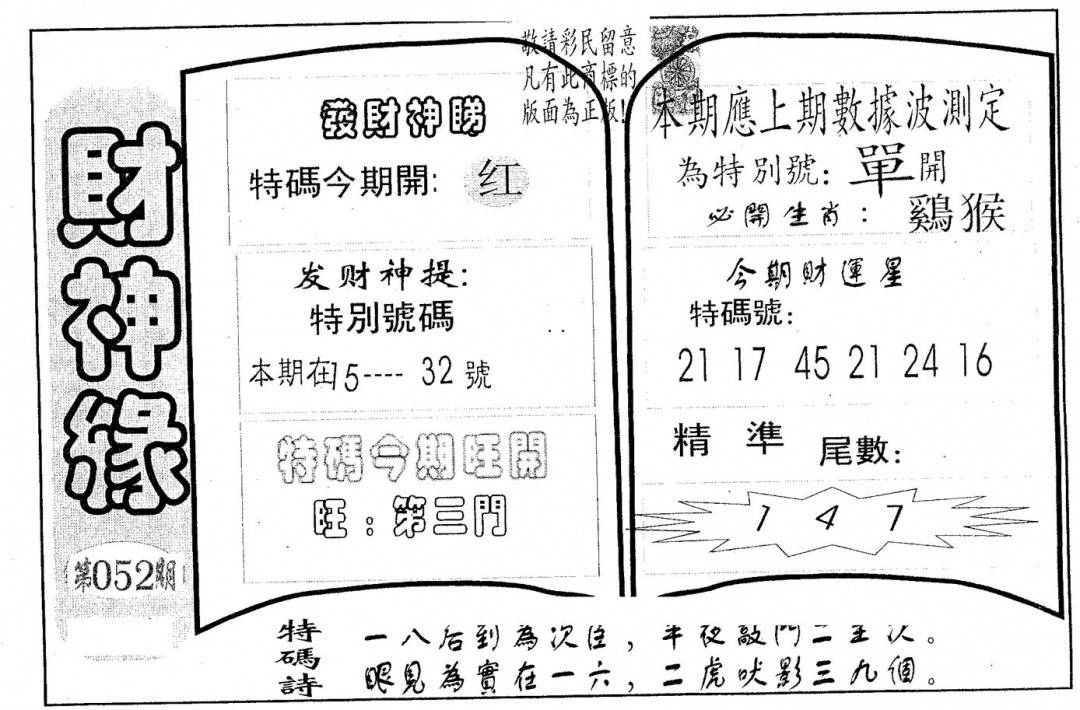 財神緣
第052期
敬請彩民留意
凡有此商標的
版面為正版!
發財神睇
特碼今期開: 红
发财神提:
特別號碼
本期在15---- 32號
特碼今期旺開
旺:第三門
本期應上期數據波測定
為特別號: 單開
必開生肖: 鷄猴
今期財運星
特碼號:
21 17 45 21 24 16
精準 尾數:
1 4 7
特碼詩
一八后到為次住,半夜敲門二主次。
眼見為實在一六,二虎吠影三九個。